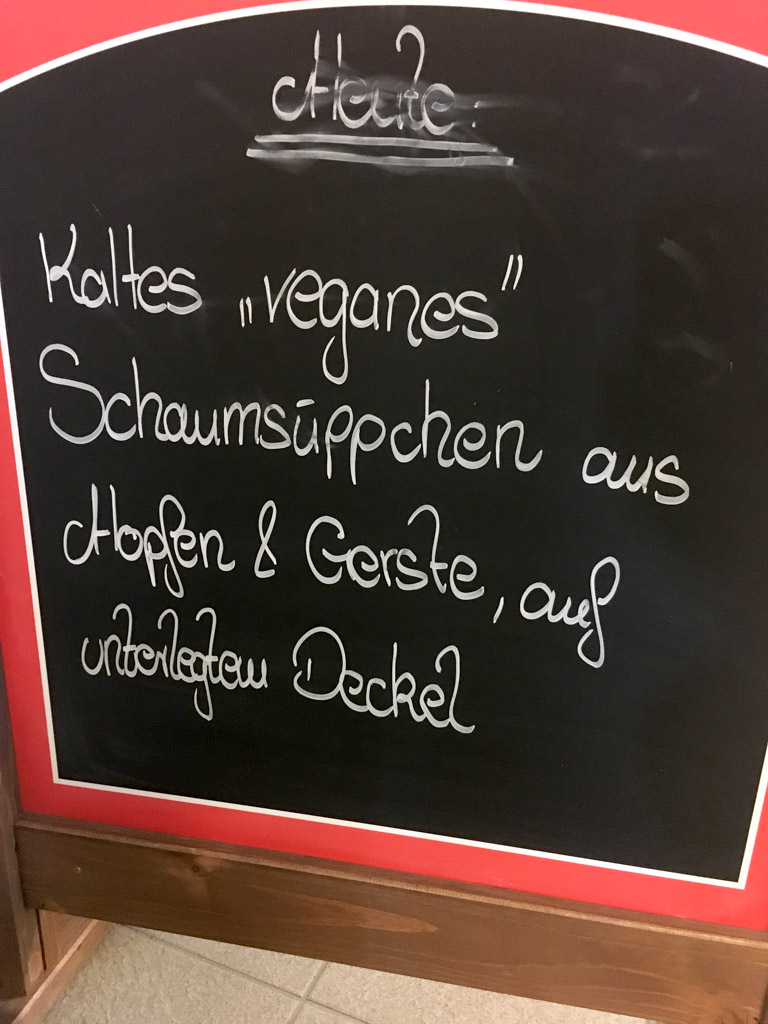 Heute:
Kaltes „veganes”
Schaumsüppchen aus
Hopfen & Gerste, auf
unterlegtem Deckel